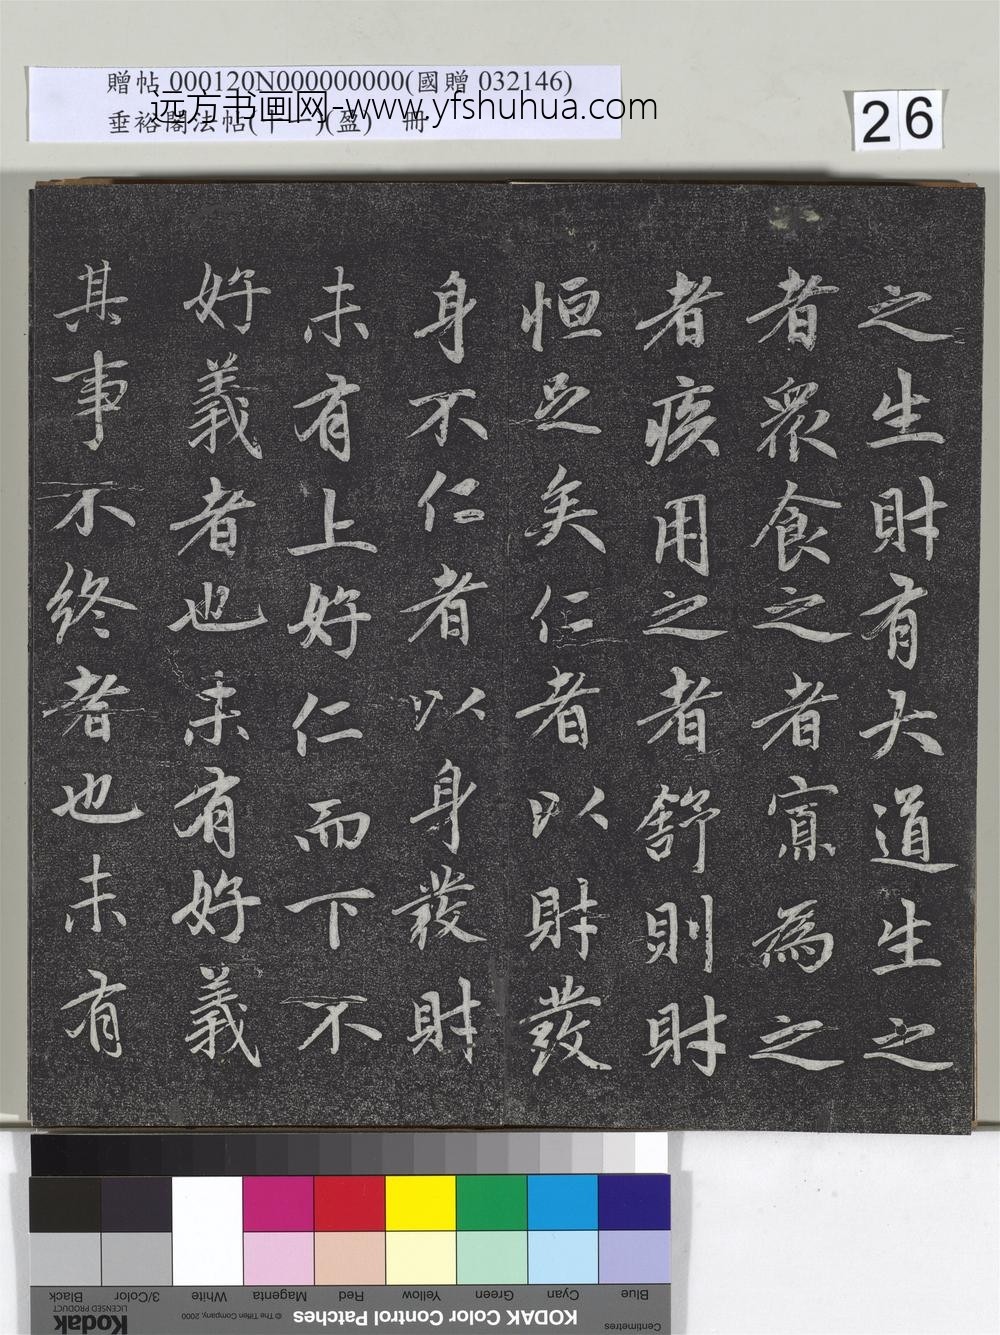 贈帖 000120N000000000(國贈 032146)
垂裕閣法帖(十一)(盈) 冊
远方书画网-www.yfshuhua.com
26
之生財有大道生之
者眾食之者寡為之
者疾用之者舒則財
恒足矣仁者以財發
身不仁者以身發財
未有上好仁而下不
好義者也未有好義
其事不終者也未有
Blue
Cyan
Green
Yellow
Red
Magenta
White
3/Color
Black
Centimetres
KODAK Color Control Patches
© The Tiffen Company, 2000
Kodak
LICENSED PRODUCT